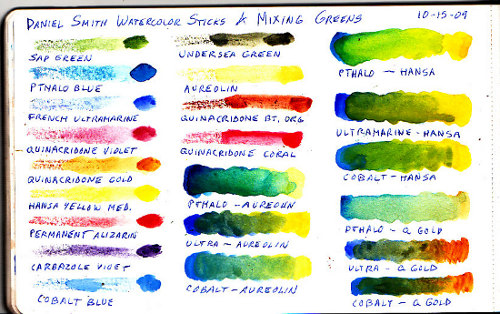 DANIEL SMITH WATERCOLOR STICKS & MIXING GREENS 10-15-09
SAP GREEN
PTHALO BLUE
FRENCH ULTRAMARINE
QUINACRIDONE VIOLET
QUINACRIDONE GOLD
HANSA YELLOW MED.
PERMANENT ALIZARIN
CARBAZOLE VIOLET
COBALT BLUE
UNDERSEA GREEN
AUREOLIN
QUINACRIDONE BT. ORG
QUINACRIDONE CORAL
PTHALO - AUREOLIN
ULTRA - AUREOLIN
COBALT - AUREOLIN
PTHALO - HANSA
ULTRAMARINE - HANSA
COBALT - HANSA
PTHALO - Q GOLD
ULTRA - Q GOLD
COBALT - Q GOLD